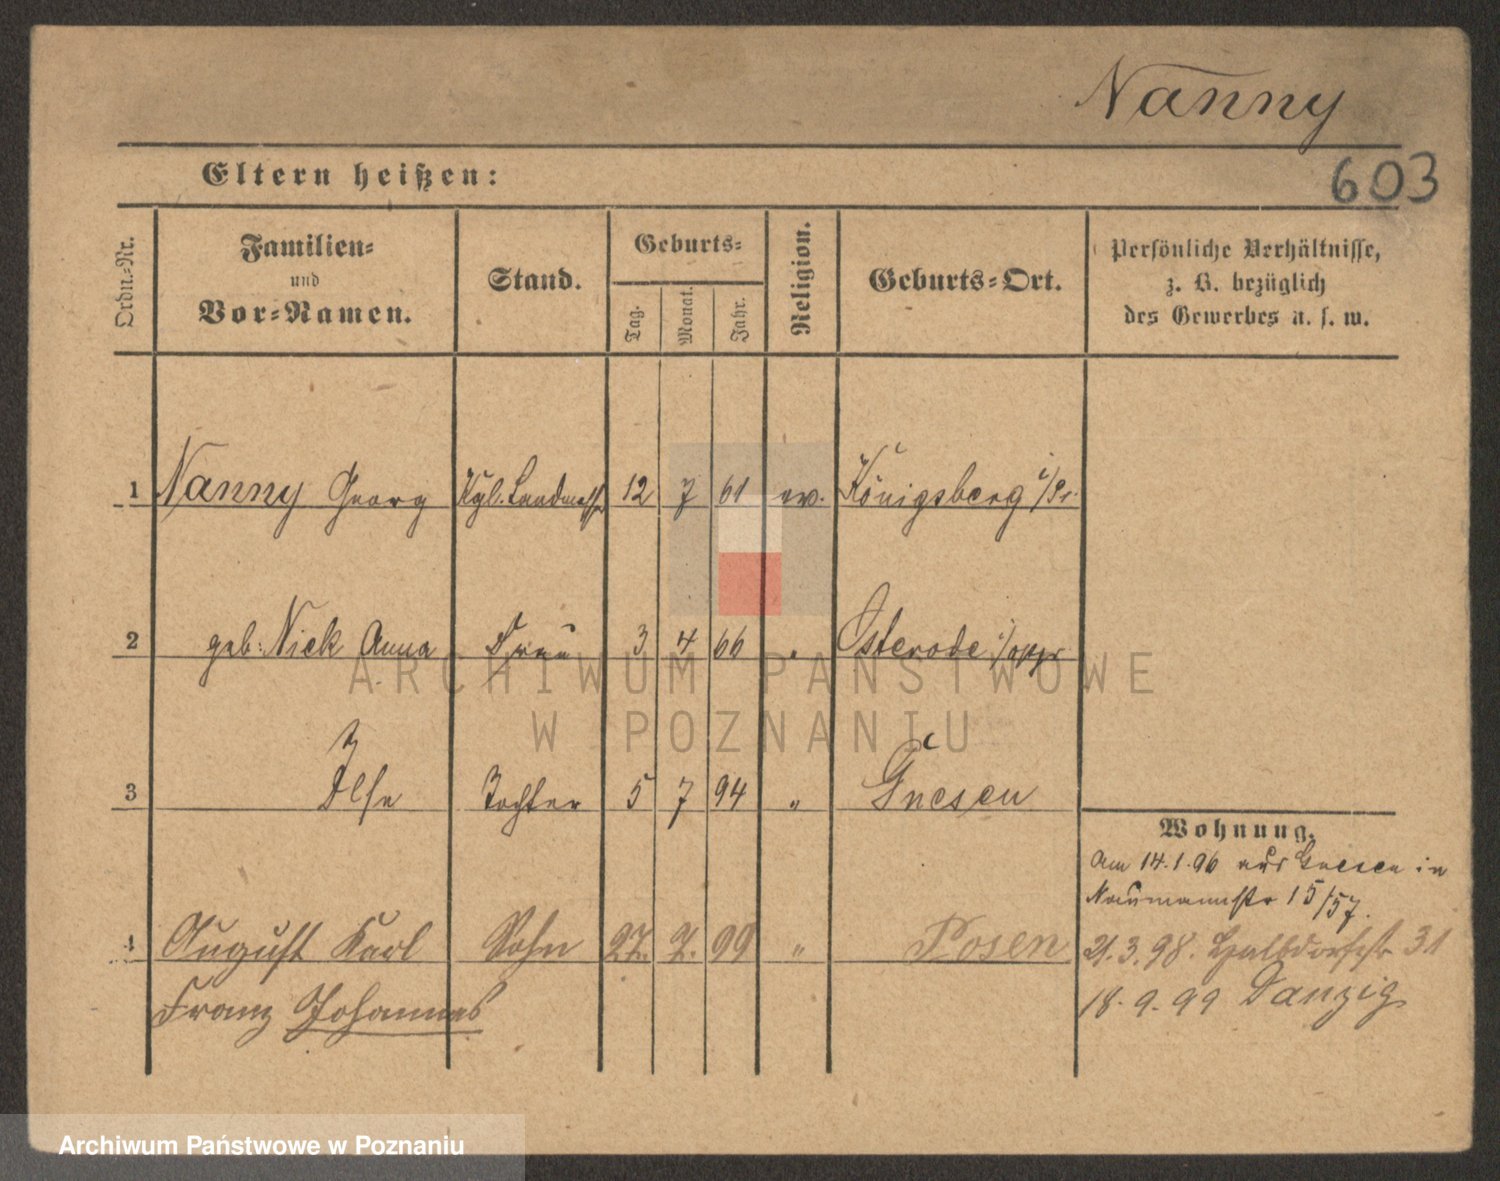 Nanny
603
Eltern heißen:
Ordn.-Nr.
Familien-
und
Vor-Namen.
Stand.
Geburts-
Tag.
Monat.
Jahr.
Religion.
Geburts-Ort.
Persönliche Verhältnisse,
z. B. bezüglich
des Gewerbes u. s. w.
1 Nanny Georg Kgl. Landmesser 12 7 61 ev. Königsberg i/Pr.
2 geb. Nick Anna Frau 3 4 66 " Osterode i/
3 Ilse Tochter 5 7 94 " Gnesen
Wohnung.
Am 14.1.96 aus Gnesen in
Naumannstr 15/57.
4 August Karl Sohn 27. 2. 99 " Posen
21.3.98. Halbdorfstr 31
Franz Johannes
18.9.99 Danzig
ARCHIWUM PAŃSTWOWE
W POZNANIU
Archiwum Państwowe w Poznaniu